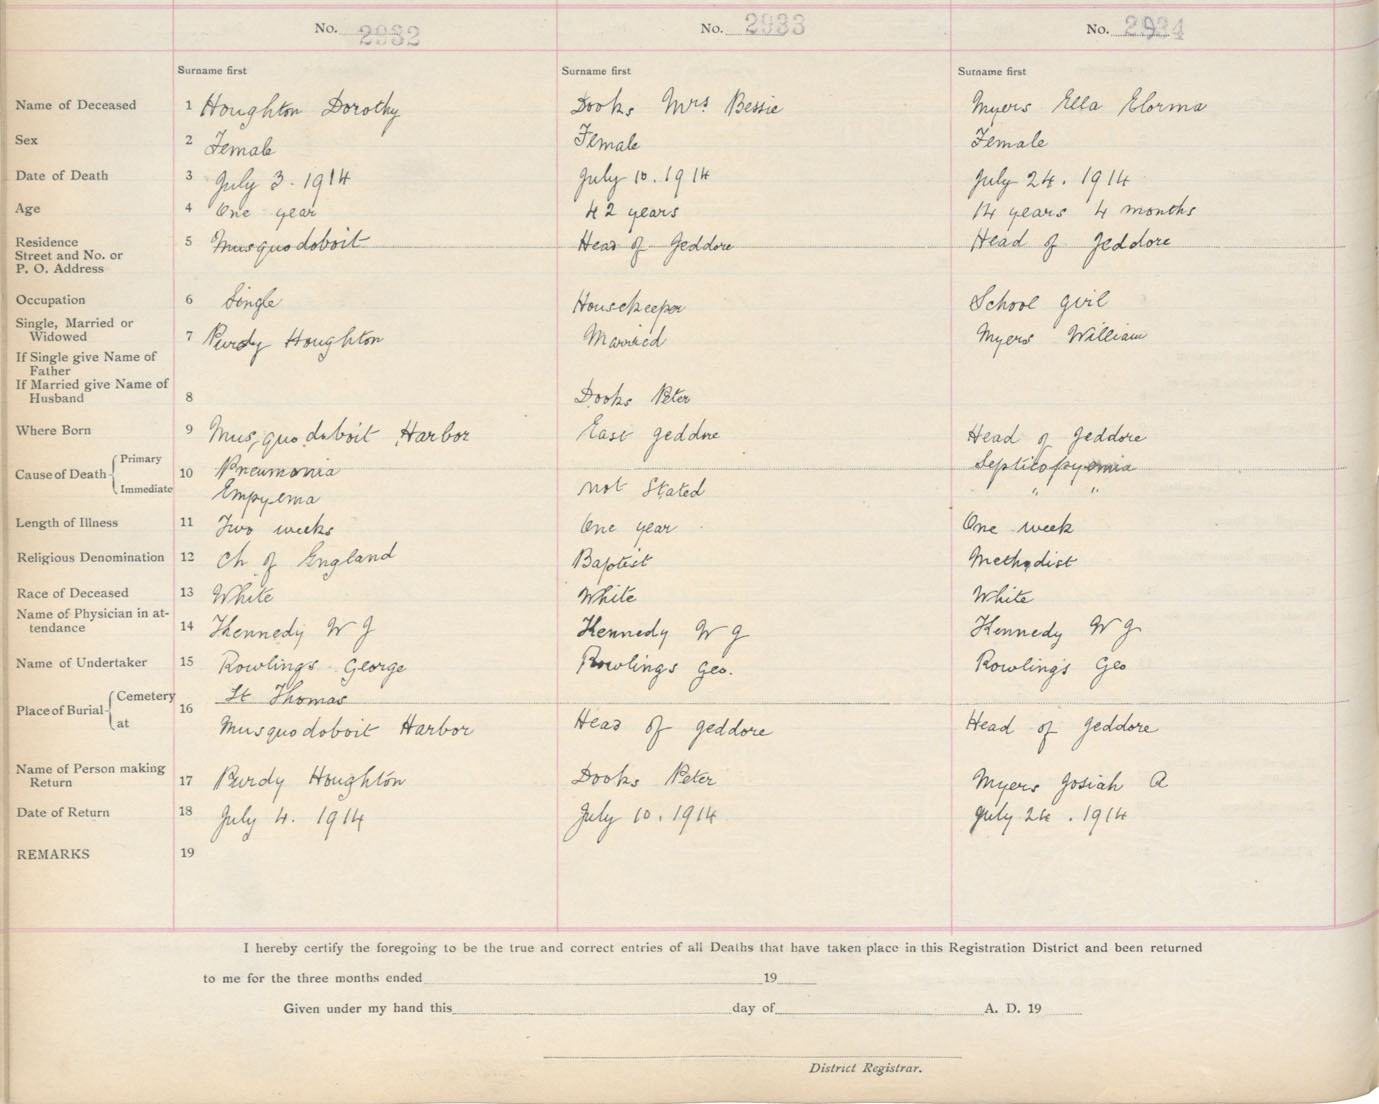 No. 2932 No. 2933 No. 2934
Surname first Surname first Surname first
Name of Deceased 1 Houghton Dorothy Dooks Mrs Bessie Myers Ella Elorma
Sex 2 Female Female Female
Date of Death 3 July 3. 1914 July 10. 1914 July 24. 1914
Age 4 One year 42 years 14 years 4 months
Residence 5 Musquodoboit Head of Jeddore Head of Jeddore
Street and No. or
P. O. Address
Occupation 6 Single Housekeeper School girl
Single, Married or
Widowed 7 Purdy Houghton Married Myers William
If Single give Name of
Father
If Married give Name of
Husband 8 Dooks Peter
Where Born 9 Musquodoboit Harbor East Jeddore Head of Jeddore
Cause of Death Primary 10 Pneumonia Septicopyemia
Immediate Empyema not Stated " "
Length of Illness 11 Two weeks One year One week
Religious Denomination 12 Ch of England Baptist Methodist
Race of Deceased 13 White White White
Name of Physician in at-
tendance 14 Kennedy W J Kennedy W J Kennedy W J
Name of Undertaker 15 Rowlings George Rowlings Geo. Rowlings Geo
Place of Burial Cemetery 16 St Thomas
at Musquodoboit Harbor Head of Jeddore Head of Jeddore
Name of Person making
Return 17 Purdy Houghton Dooks Peter Myers Josiah R
Date of Return 18 July 4. 1914 July 10. 1914 July 24. 1914
REMARKS 19
I hereby certify the foregoing to be the true and correct entries of all Deaths that have taken place in this Registration District and been returned
to me for the three months ended 19
Given under my hand this day of A. D. 19
District Registrar.